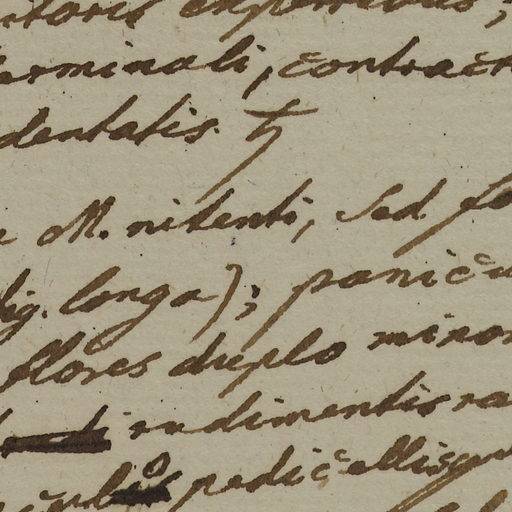 terminali, contract
dentatis. ♄
M. nitenti, sed fo
lig. longa); panicu
flores duplo minor
rudimentis ra
pedicellisque